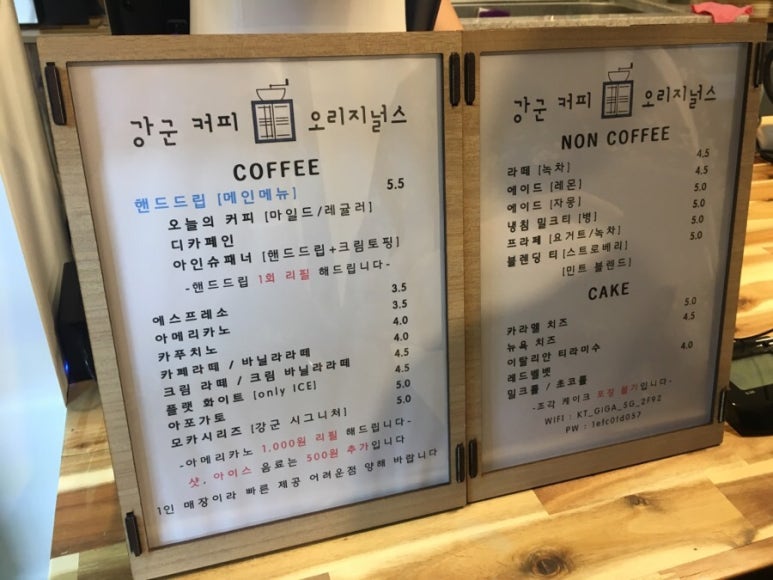 강군 커피 오리지널스
COFFEE
핸드드립 [메인메뉴] 5.5
오늘의 커피 [마일드/레귤러]
디카페인
아인슈패너 [핸드드립+크림토핑]
-핸드드립 1회 리필 해드립니다-
에스프레소 3.5
아메리카노 3.5
카푸치노 4.0
카페라떼 / 바닐라라떼 4.0
크림 라떼 / 크림 바닐라라떼 4.5
플랫 화이트 [only ICE] 4.5
아포가토 5.0
모카시리즈 [강군 시그니처] 5.0
-아메리카노 1,000원 리필 해드립니다-
샷, 아이스 음료는 500원 추가입니다
1인 매장이라 빠른 제공 어려운점 양해 바랍니다
강군 커피 오리지널스
NON COFFEE
라떼 [녹차] 4.5
에이드 [레몬] 4.5
에이드 [자몽] 5.0
냉침 밀크티 [병] 5.0
프라페 [요거트/녹차] 5.0
블렌딩 티 [스트로베리] 5.0
[민트 블렌드]
CAKE
카라멜 치즈 5.0
뉴욕 치즈 4.5
이탈리안 티라미수
레드벨벳 4.0
밀크롤 / 초코롤
-조각 케이크 포장 불가입니다-
WIFI : KT_GIGA_5G_2F92
PW : 1efc01d057